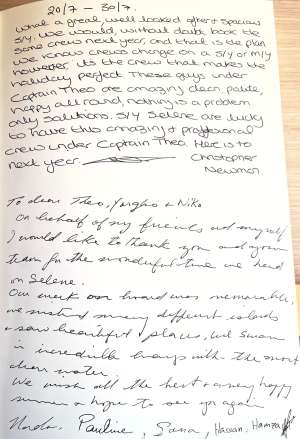 20/7 - 30/7.
What a great, well looked after & spacious
S/Y. We would, without doubt book the
same crew next year, and that is the plan
we know crews change on a S/Y or M/Y
however, its the crew that makes the
holiday perfect. These guys under
Captain Theo are amazing clean, polite,
happy all round, nothing is a problem
only solutions. S/Y Selene are lucky
to have this amazing & professional
crew under Captain Theo. Here is to
next year.
Christopher
Newman.
To dear Theo, Yorgho & Niko
On behalf of my friends and myself
I would like to thank you and your
team for the wonderful time we had
on Selene.
Our week on board was memorable,
we visited many different islands
& saw beautiful places, we swam
in incredible bays with the most
clear water.
We wish all the best & a very happy
summer & hope to see you again
Nada, Pauline, Sana, Hassan, Hamza